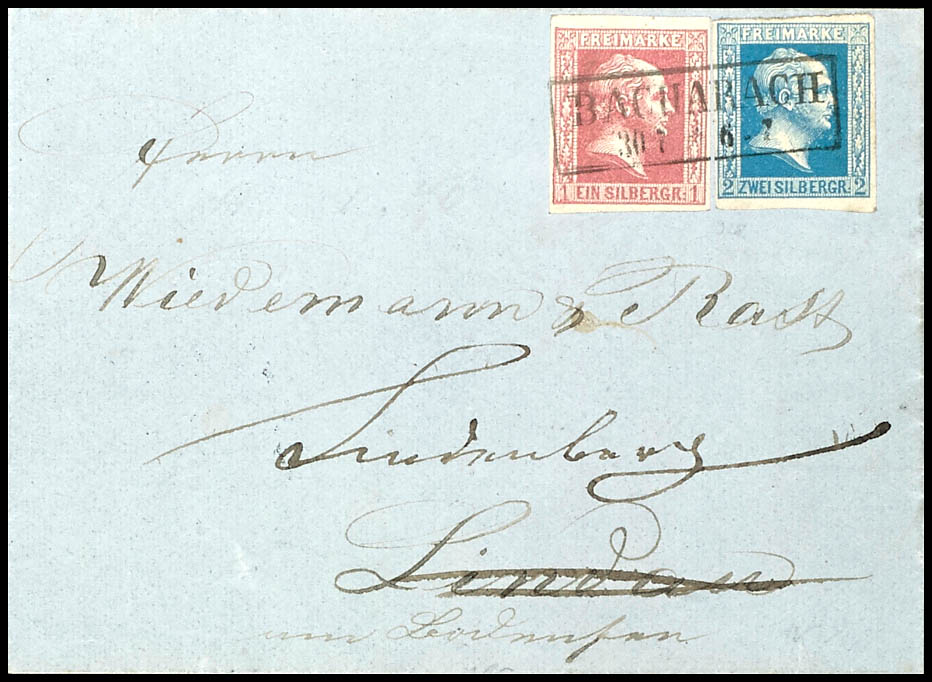 FREIMARKE
1 EIN SILBERGR: 1
FREIMARKE
2 ZWEI SILBERGR. 2
BACHARACH
30 1 6-7
Herrn
Wiedemann & Rast
Lindenberg
Lindau
am Bodensee